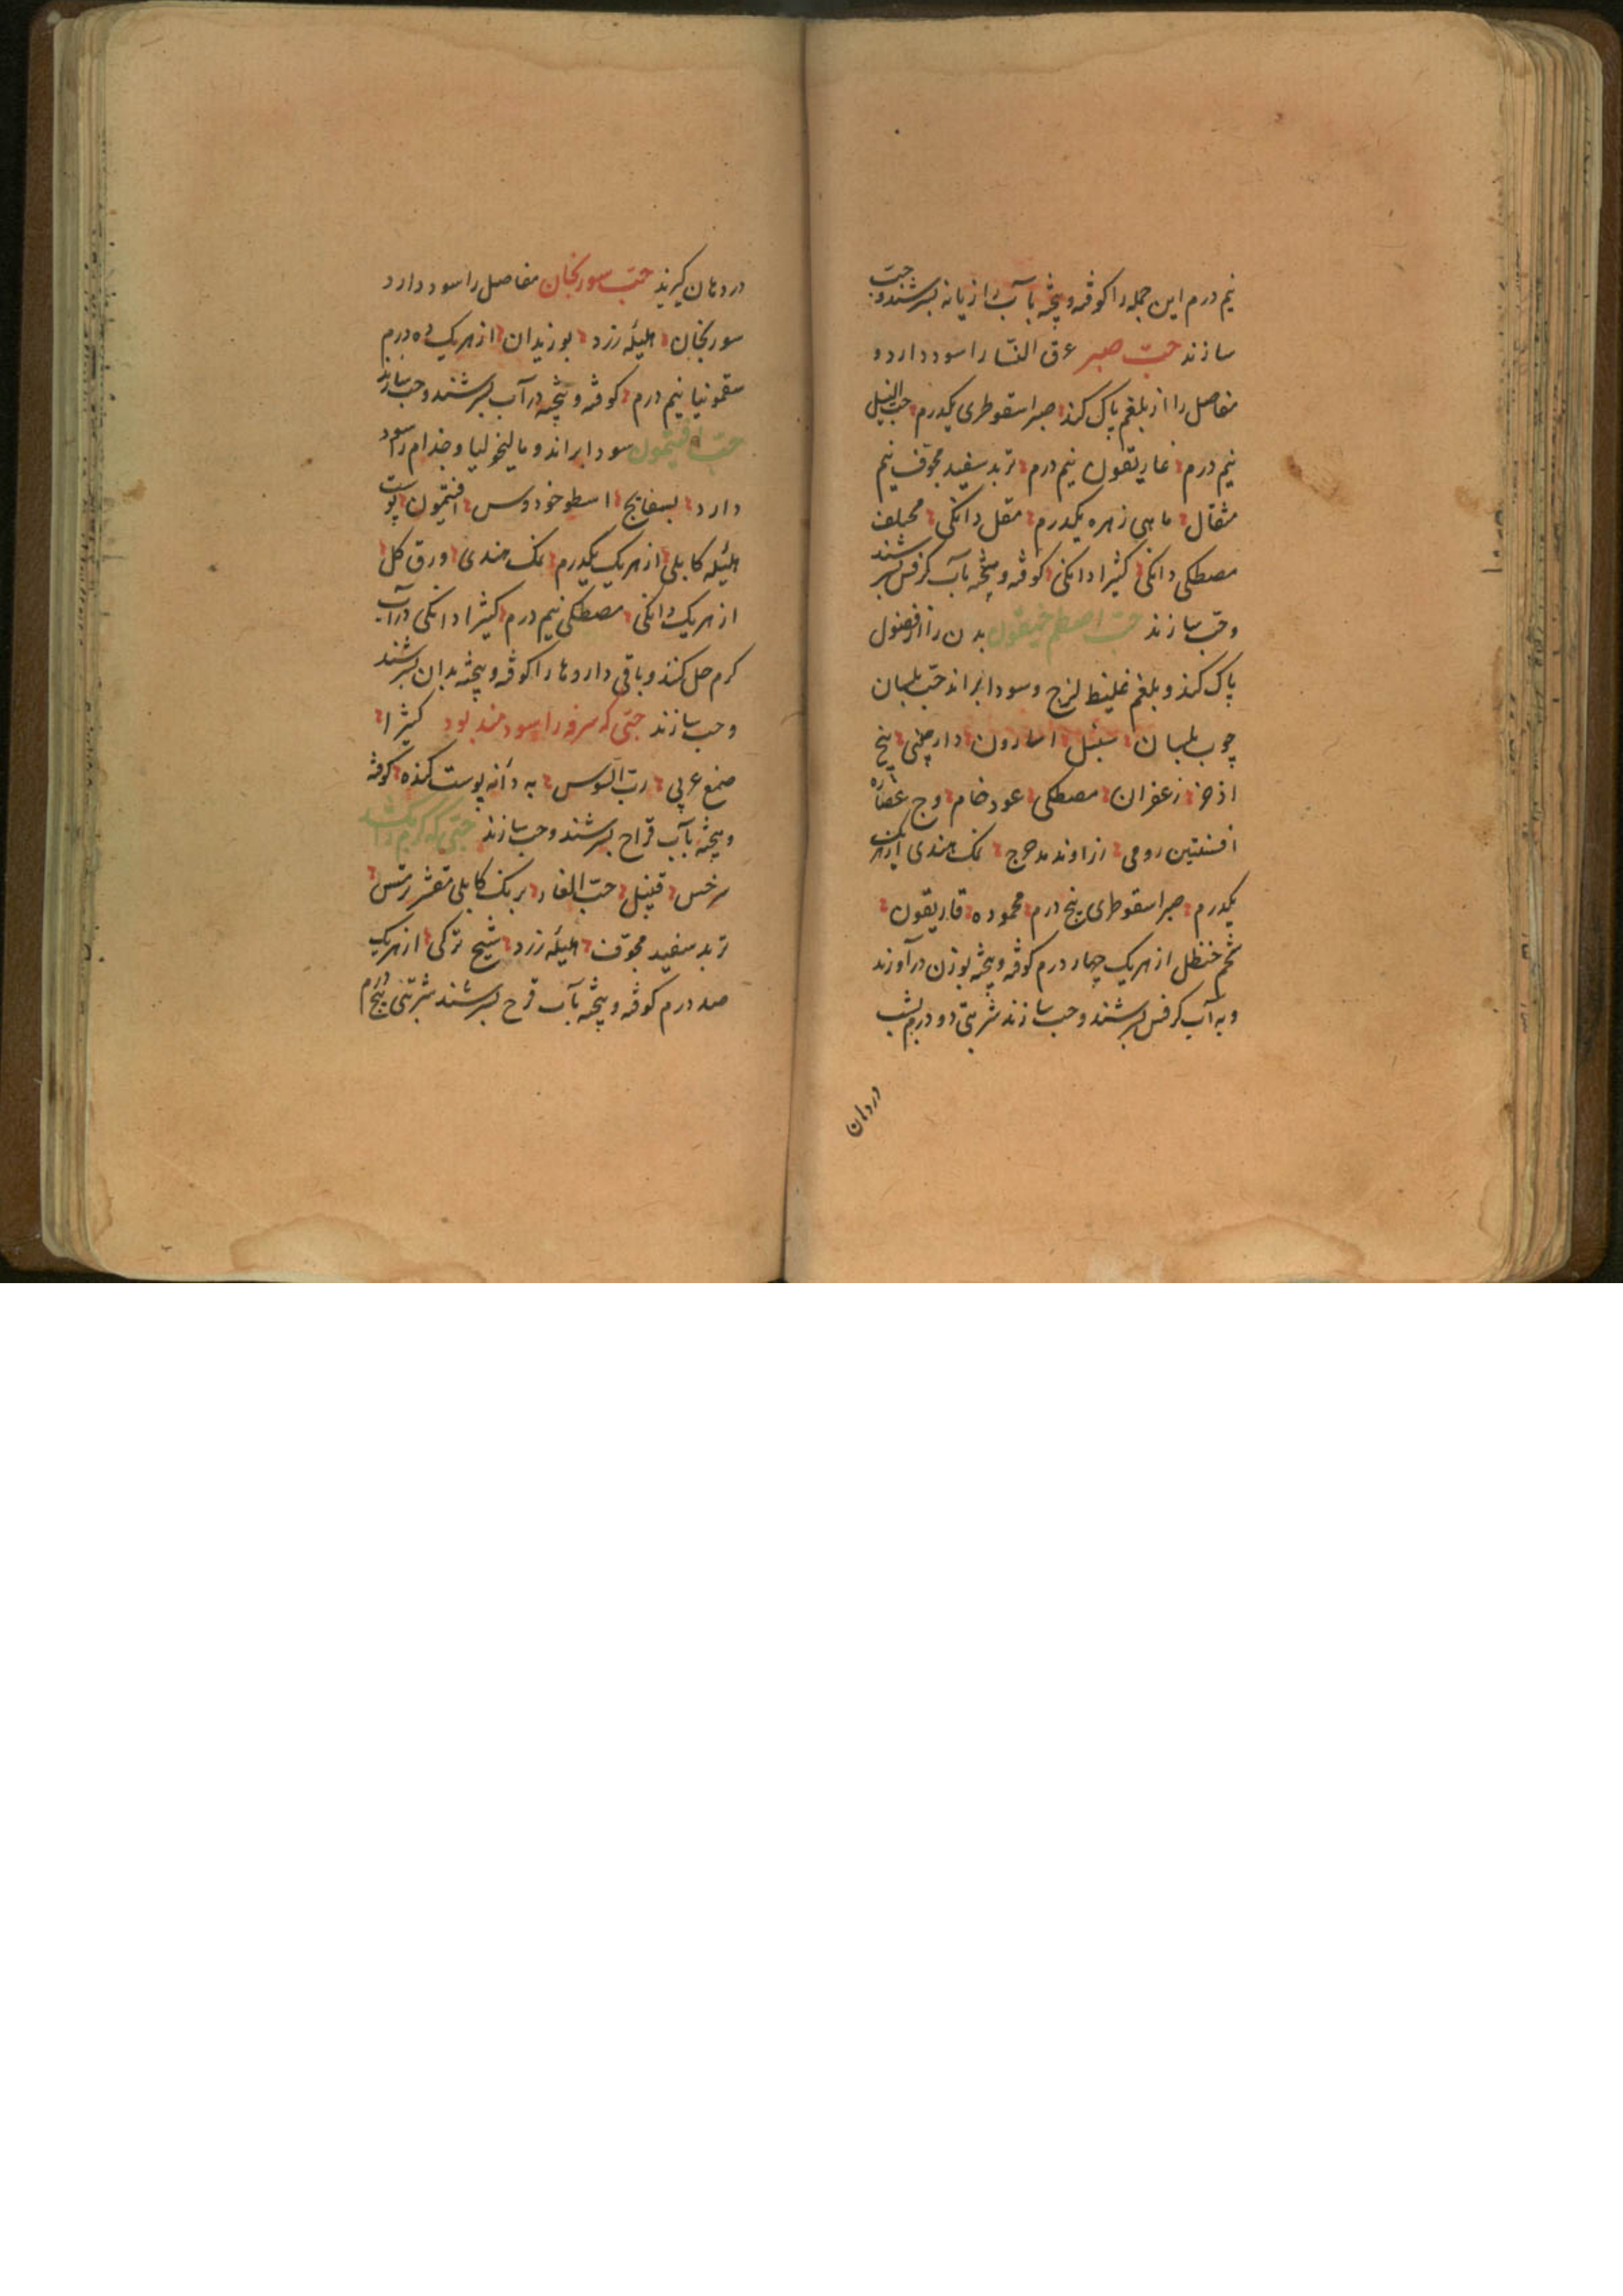 نیم درم این جمله را کوفته و پخته بآب رازیانه بسرشند و حب
سازند حبّ صبر عرق النّسا را سود دارد و
مفاصل را از بلغم پاک کند صبر اسقوطری یکدرم حب النیل
نیم درم غاریقون نیم درم تربد سفید مجوف نیم
مثقال ماهی زهره یکدرم مقل دانکی
مصطکی دانکی کثیرا دانکی کوفته و پیخته بآب کرفس بسرشند
و حب سازند حبّ اصطمخیقون بدن را از فضول
پاک کند و بلغم غلیظ لزج و سودا براند حبّ بلسان
چوب بلسان سنبل اسارون دارچینی بیخ
اذخر زعفران مصطکی عود خام وج عصاره
افسنتین رومی زراوند مدحرج نمک هندی از هریک
یکدرم صبر اسقوطری پنج درم محموده قاریقون
شحم حنظل از هریک چهار درم کوفته و پیخته بوزن درآورند
و به آب کرفس بسرشند و حب سازند شربتی دو درم بشب
در دهان
در دهان گیرند حبّ سورنجان مفاصل را سود دارد
سورنجان هلیله زرد بوزیدان از هریک ده درم
سقمونیا نیم درم کوفته و پیخته در آب بسرشند و حب سازند
حبّ افتیمون سودا براند و مالیخولیا و جذام را سود
دارد بسفایج اسطوخودوس افتیمون پوست
هلیله کابلی از هریک یکدرم نمک هندی ورق کل
از هریک دانکی مصطکی نیم درم کثیرا دانکی در آب
کرم حل کنند و باقی داروها را کوفته و پیخته بدان بسرشند
و حب سازند حبّی که سرفه را سودمند بود کثیرا
صمغ عربی ربّ السّوس به دانه پوست کنده کوفته
و پیخته بآب قراح بسرشند و حب سازند حبّی که کرم را بکشد
سرخس قنبیل حبّ الغار برنک کابلی مقشر ترمس
تربد سفید مجوّف هلیله زرد شیح ترکی از هریک
صد درم کوفته و پیخته بآب قرح بسرشند شربتی پنج درم